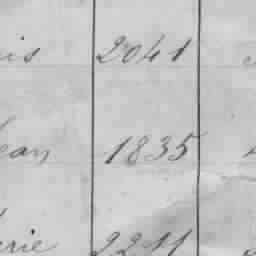 is 2041
ean 1835
rie 2211